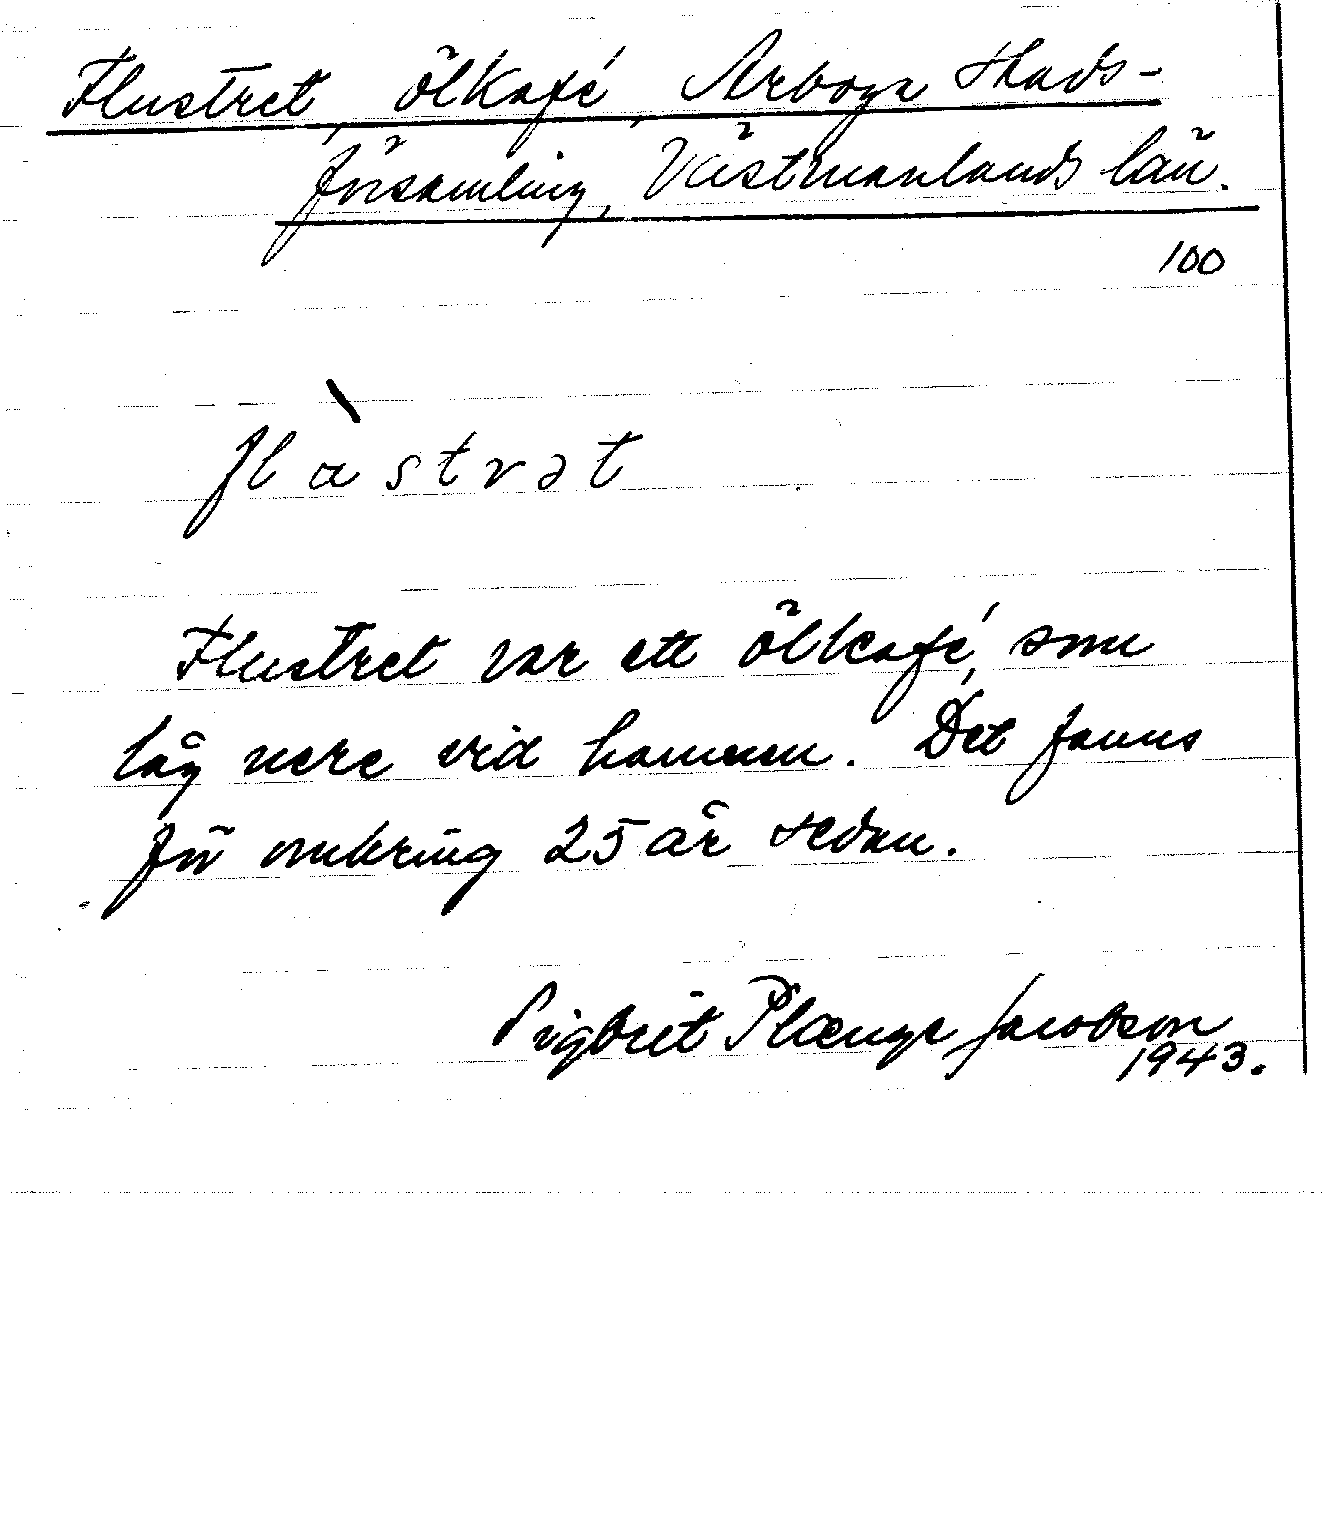 Flustret, ölkafé, Arboga stads-
församling, Västmanlands län.
100
flɑ̀strət
Flustret var ett ölkafé, som
låg nere vid hamnen. Det fanns
för omkring 25 år sedan.
Sigbrit Plænge Jacobson
1943.